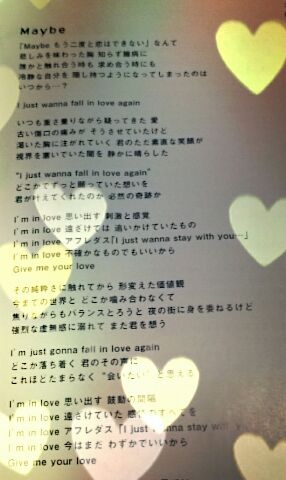 Maybe
「Maybe もう二度と恋はできない」なんて
悲しみを味わった胸 知らず臆病に
誰かと触れ合う時も 求め合う時にも
冷静な自分を 隠し持つようになってしまったのは
いつから…?
I just wanna fall in love again
いつも重さ量りながら塞ってきた 愛
古い傷口の痛みが そうさせていたけど
渇いた胸に注がれていく 君のただ素直な笑顔が
視界を塞いでいた闇を 静かに晴らした
"I just wanna fall in love again"
どこかでずっと願っていた想いを
君が叶えてくれたのか 必然の奇跡か
I'm in love 思い出す 刺激と感覚
I'm in love 遠ざけては 追いかけていたもの
I'm in love アフレダス「I just wanna stay with you…」
I'm in love 不確かなものでもいいから
Give me your love
その純粋さに触れてから 形変えた価値観
今までの世界と どこか噛み合わなくて
焦りながらもバランスとろうと 夜の街に身を委ねるけど
強烈な虚無感に溺れて また君を想う
I'm just gonna fall in love again
どこか落ち着く 君のその声に
これほどたまらなく "会いたい"と思える
I'm in love 思い出す 鼓動の間隔
I'm in love 遠ざけていた 感情のすべてを
I'm in love アフレダス「I just wanna stay with you…」
I'm in love 今はまだ わずかでいいから
Give me your love